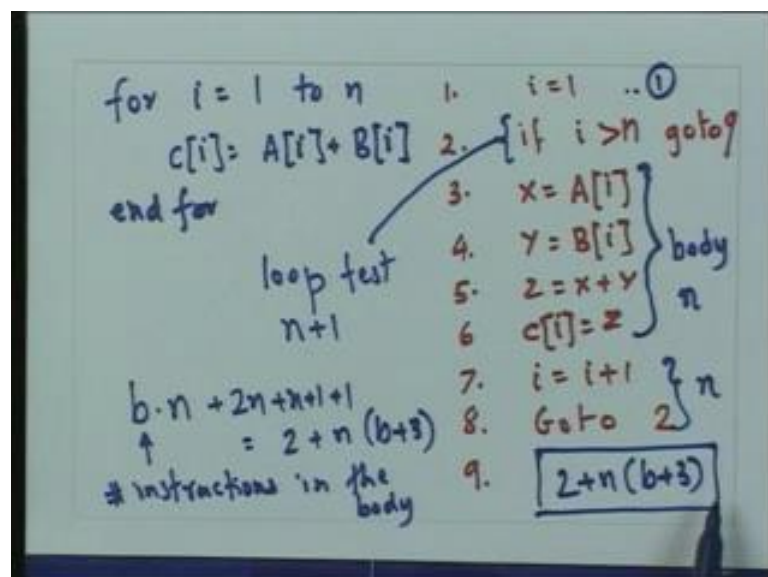 for i = 1 to n
c[i]= A[i]+ B[i]
end for
loop test
n+1
b.n +2n+n+1+1
= 2 + n (b+3)
↑
# instructions in the
body
1. i=1 ..①
2. {if i >n goto9
3. x= A[i]
4. Y= B[i]
5. z=x+Y
6 c[i]= z
} body
n
7. i= i+1
8. Goto 2
} n
9. 2+n(b+3)